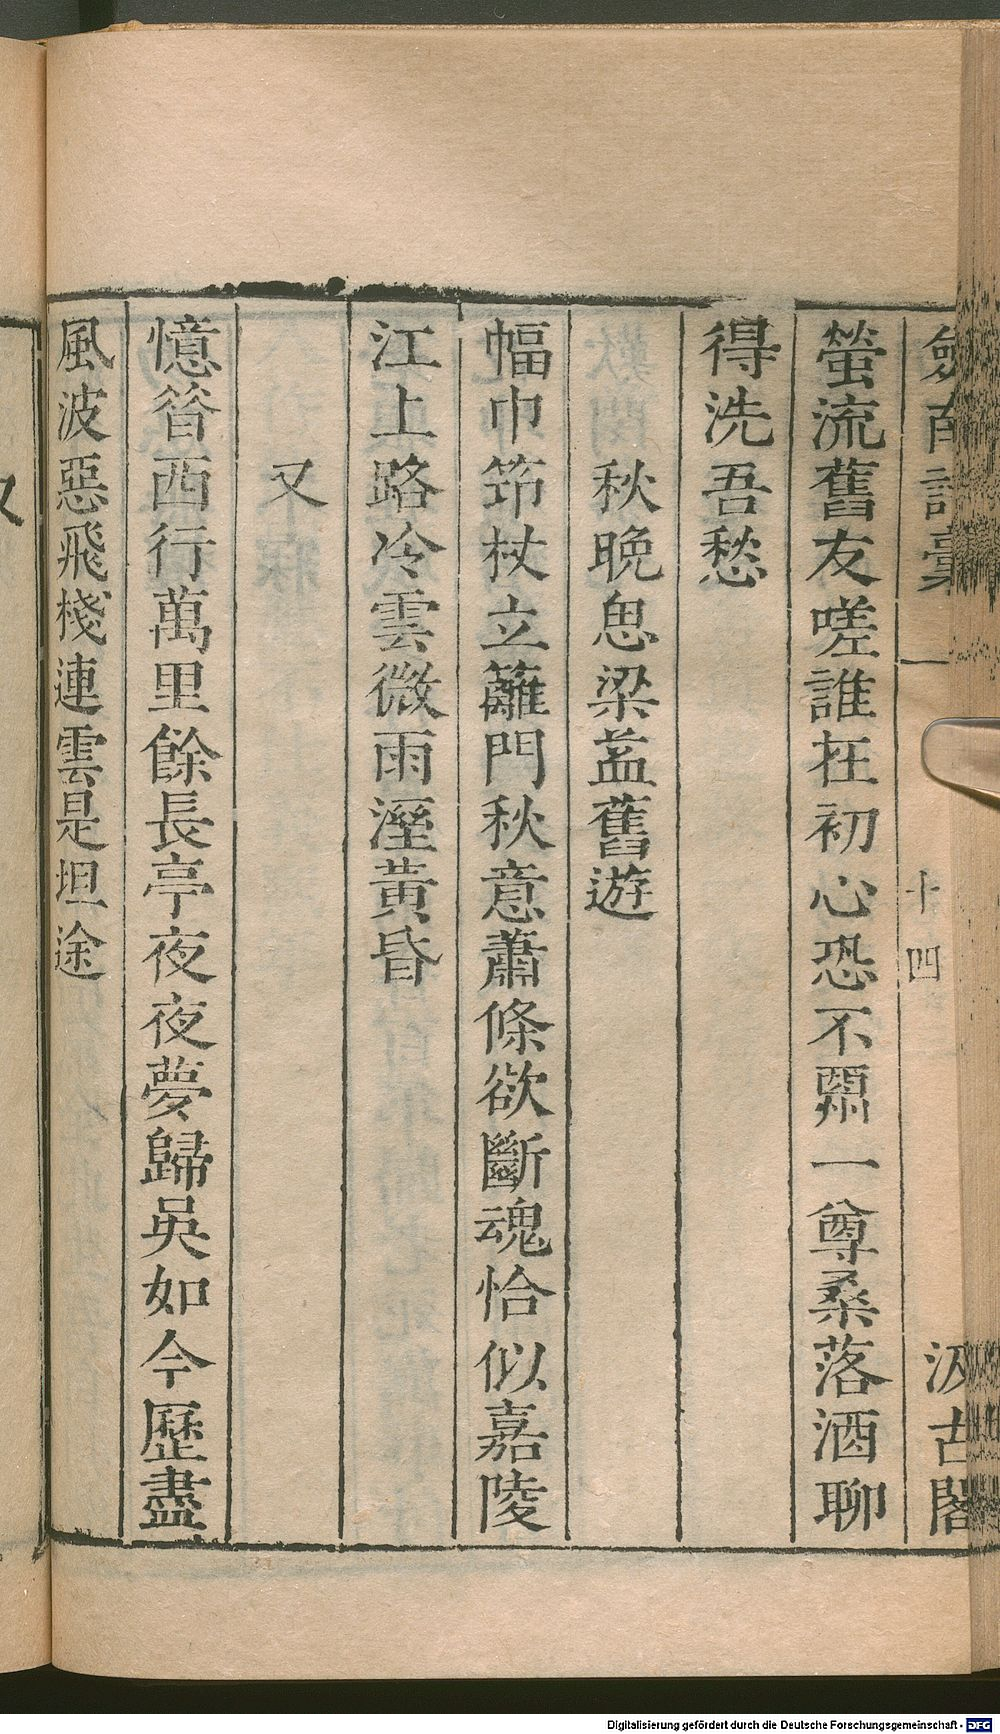 劍南詩稾 一 十四 汲古閣
螢流舊友嗟誰在初心恐不酬一尊桑落酒聊
得洗吾愁
秋晚思梁益舊遊
幅巾筇杖立籬門秋意蕭條欲斷魂恰似嘉陵
江上路冷雲微雨溼黃昏
又
憶昝西行萬里餘長亭夜夜夢歸吳如今歷盡
風波惡飛棧連雲是坦途
又
Digitalisierung gefördert durch die Deutsche Forschungsgemeinschaft - DFG